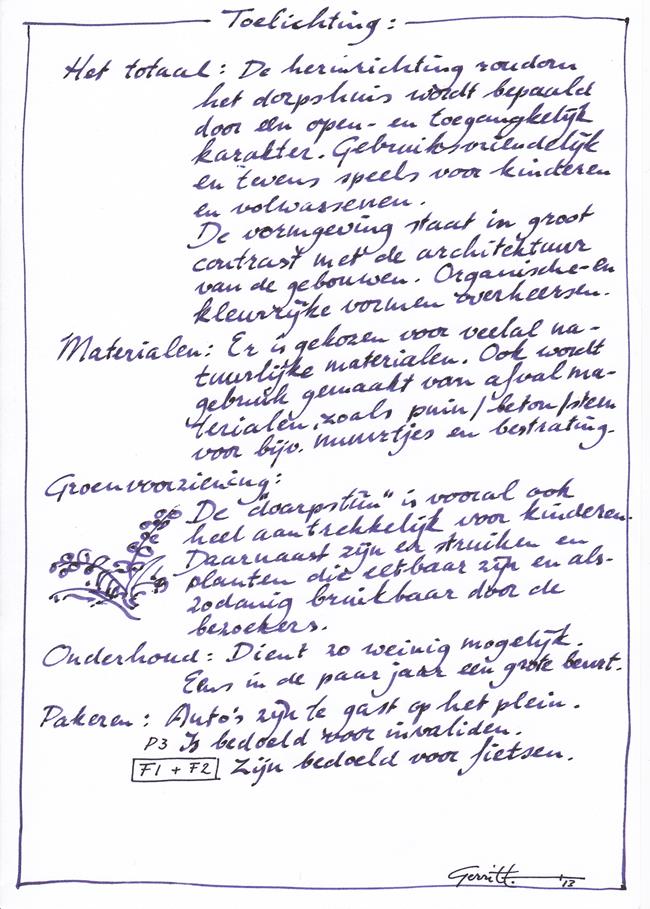 Toelichting:
Het totaal: De herinrichting rondom
het dorpshuis wordt bepaald
door een open- en toegangkelijk
karakter. Gebruiksvriendelijk
en tevens speels voor kinderen
en volwassenen.
De vormgeving staat in groot
contrast met de architektuur
van de gebouwen. Organische- en
kleurrijke vormen overheersen.
Materialen: Er is gekozen voor veelal na-
tuurlijke materialen. Ook wordt
gebruik gemaakt van afval ma-
terialen, zoals puin/beton/steen
voor bijv. muurtjes en bestrating.
Groenvoorziening:
De "doarpstún" is vooral ook
heel aantrekkelijk voor kinderen.
Daarnaast zijn er struiken en
planten die eetbaar zijn en als-
zodanig bruikbaar door de
bezoekers.
Onderhoud: Dient zo weinig mogelijk.
Eens in de paar jaar een grote beurt.
Pakeren: Auto's zijn te gast op het plein.
P3 Is bedoeld voor invaliden.
F1 + F2 Zijn bedoeld voor fietsen.
Gerritt. '13